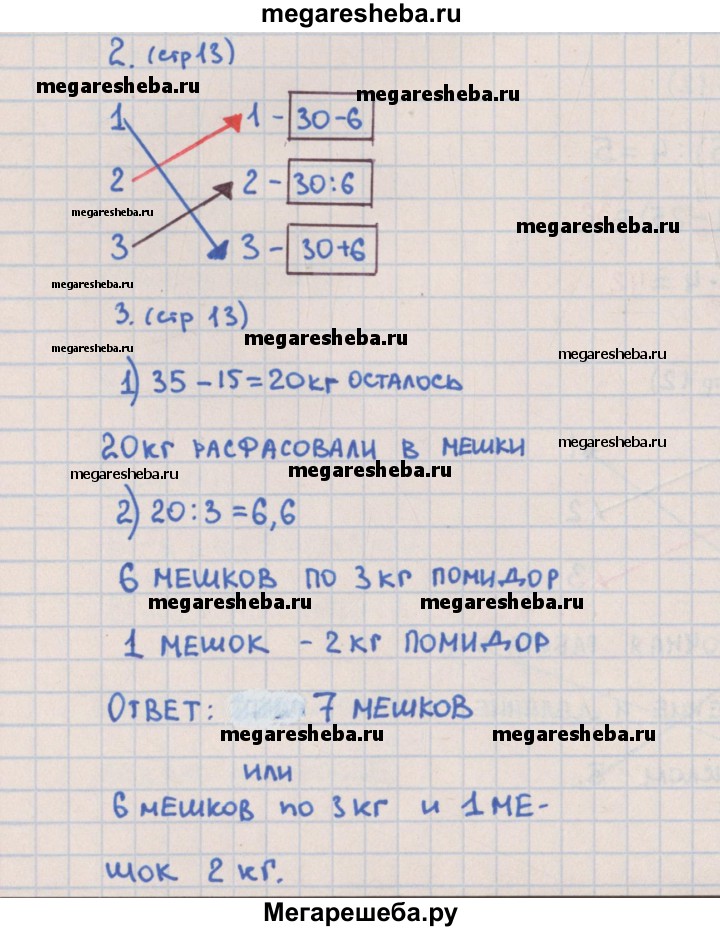 megaresheba.ru
2. (стр 13)
megaresheba.ru
megaresheba.ru
1 1 - 30-6
2 2 - 30:6
megaresheba.ru
megaresheba.ru
3 3 - 30+6
megaresheba.ru
3. (стр 13)
megaresheba.ru
megaresheba.ru
megaresheba.ru
1) 35 - 15 = 20кг ОСТАЛОСЬ
20кг РАСФАСОВАЛИ В МЕШКИ
megaresheba.ru
megaresheba.ru
megaresheba.ru
2) 20:3 = 6,6
6 МЕШКОВ ПО 3 КГ ПОМИДОР
megaresheba.ru
megaresheba.ru
1 МЕШОК - 2 КГ ПОМИДОР
ОТВЕТ: 7 МЕШКОВ
megaresheba.ru
megaresheba.ru
ИЛИ
6 МЕШКОВ ПО 3КГ И 1 МЕ-
ШОК 2 КГ.
Мегарешеба.ру